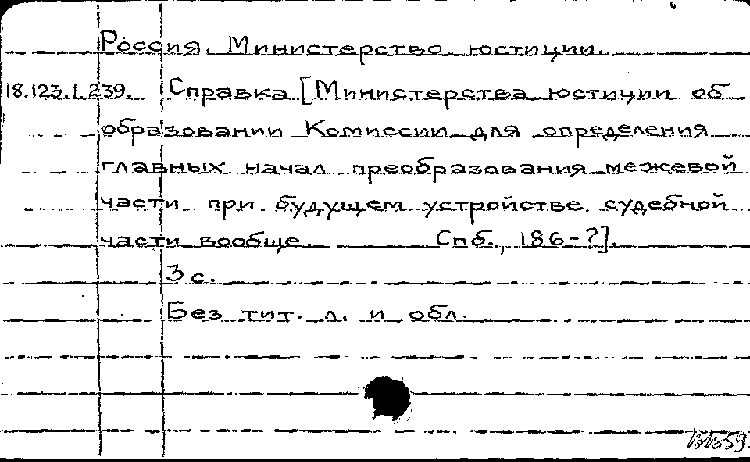 Россия. Министерство юстиции.
18.123.1.239. Справка [Министерства юстиции об
образовании Комиссии для определения
главных начал преобразования межевой
части при будущем устройстве судебной
части вообще. Спб., 186-?].
3 с.
Без тит. л. и обл.